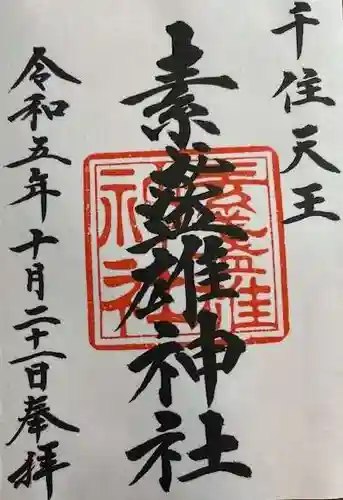 千住天王
素盞雄神社
令和五年十月二十一日奉拝
素盞雄神社